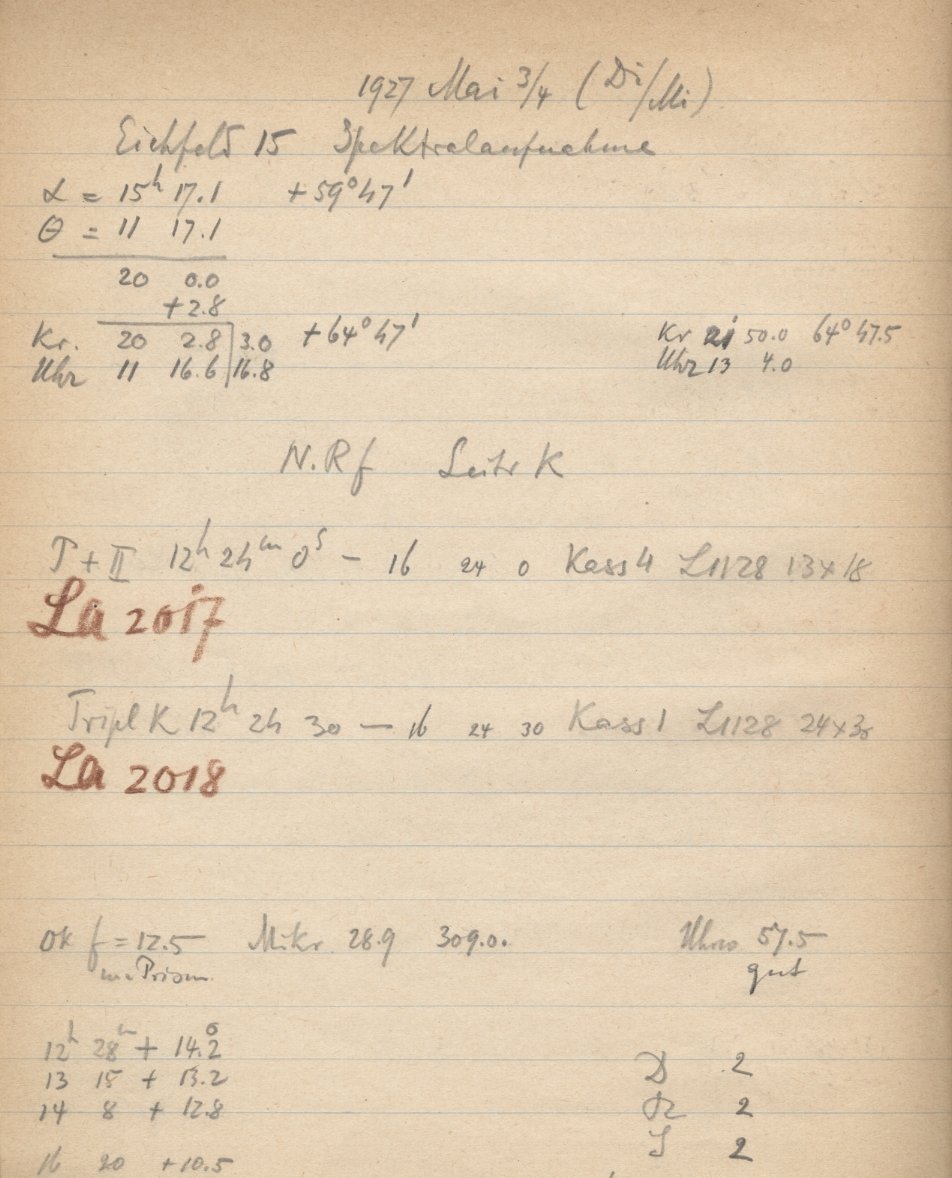 1927 Mai 3/4 (Di/Mi)
Eichfeld 15 Spektralaufnahme
α = 15h 17.1 +59°47'
θ = 11 17.1
20 0.0
+2.8
Kr. 20 2.8 | 3.0 +64°47' Kr 21 50.0 64°47.5
Uhr 11 16.6 | 16.8 Uhr 13 4.0
N.Rf Leitr K
I + II 12h 24m 0s — 16 24 0 Kass 4 L1128 13×18
La 2017
Tripl K 12h 24 30 — 16 24 30 Kass 1 L1128 24×30
La 2018
Ok f = 12.5 Mikr 28.9 309.0. 57.5
Prism gut
12h 28m + 14.2°
13 15 + 13.2 D 2
14 8 + 12.8 R 2
16 20 + 10.5 S 2